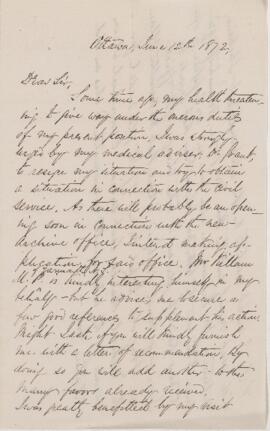 Ottawa, June 12th 1872,
Dear Sir,
Some time ago, my health threaten-
ing to give way under the onerous duties
of my present position, I was strongly
urged by my medical adviser, Dr. Grant,
to resign my situation and try to obtain
a situation in connection with the Civil
Service. As there will probably be an open-
ing soon in connection with the new
office, I intend making ap-
plication for said office. Mr William
M.P. is kindly interesting himself in my
behalf - but he advises me to secure a
few good references to supplement his action.
Might I ask if you will kindly furnish
me with a letter of recommendation. By
doing so you will add another to the
many favors already received.
I was greatly benefitted by my visit